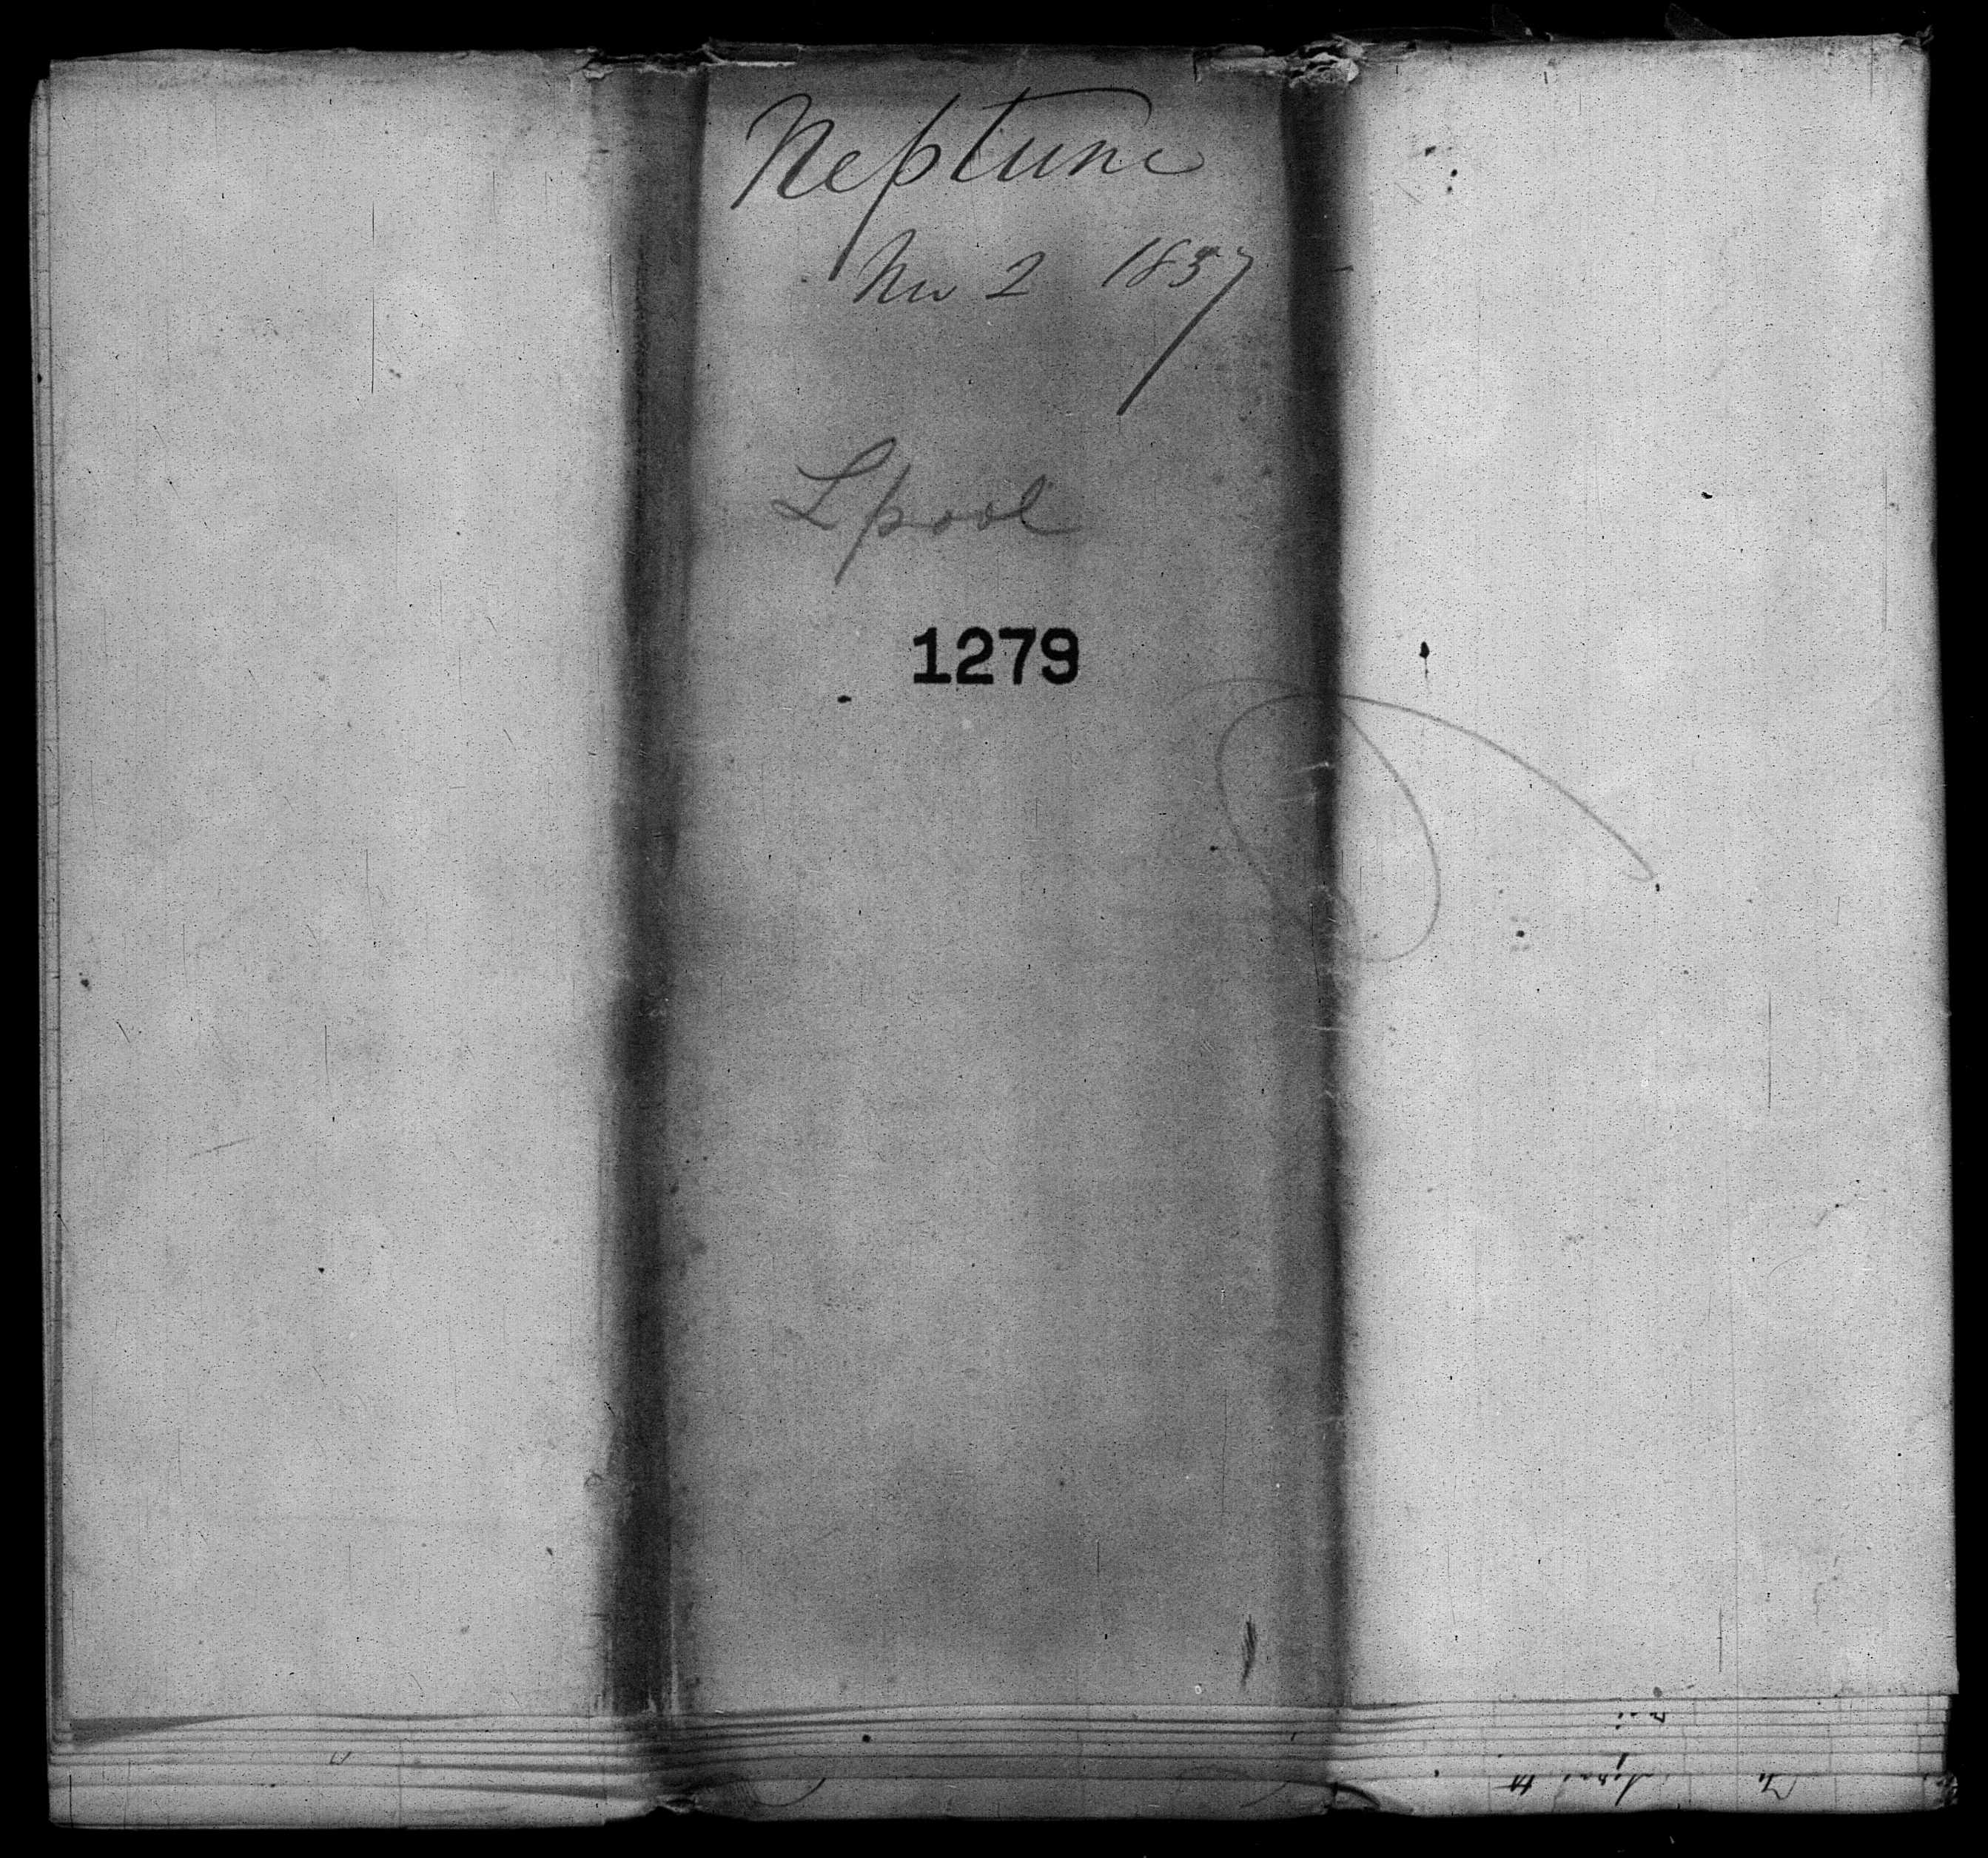 Neptune
Nov 2 1857
Lpool
1279